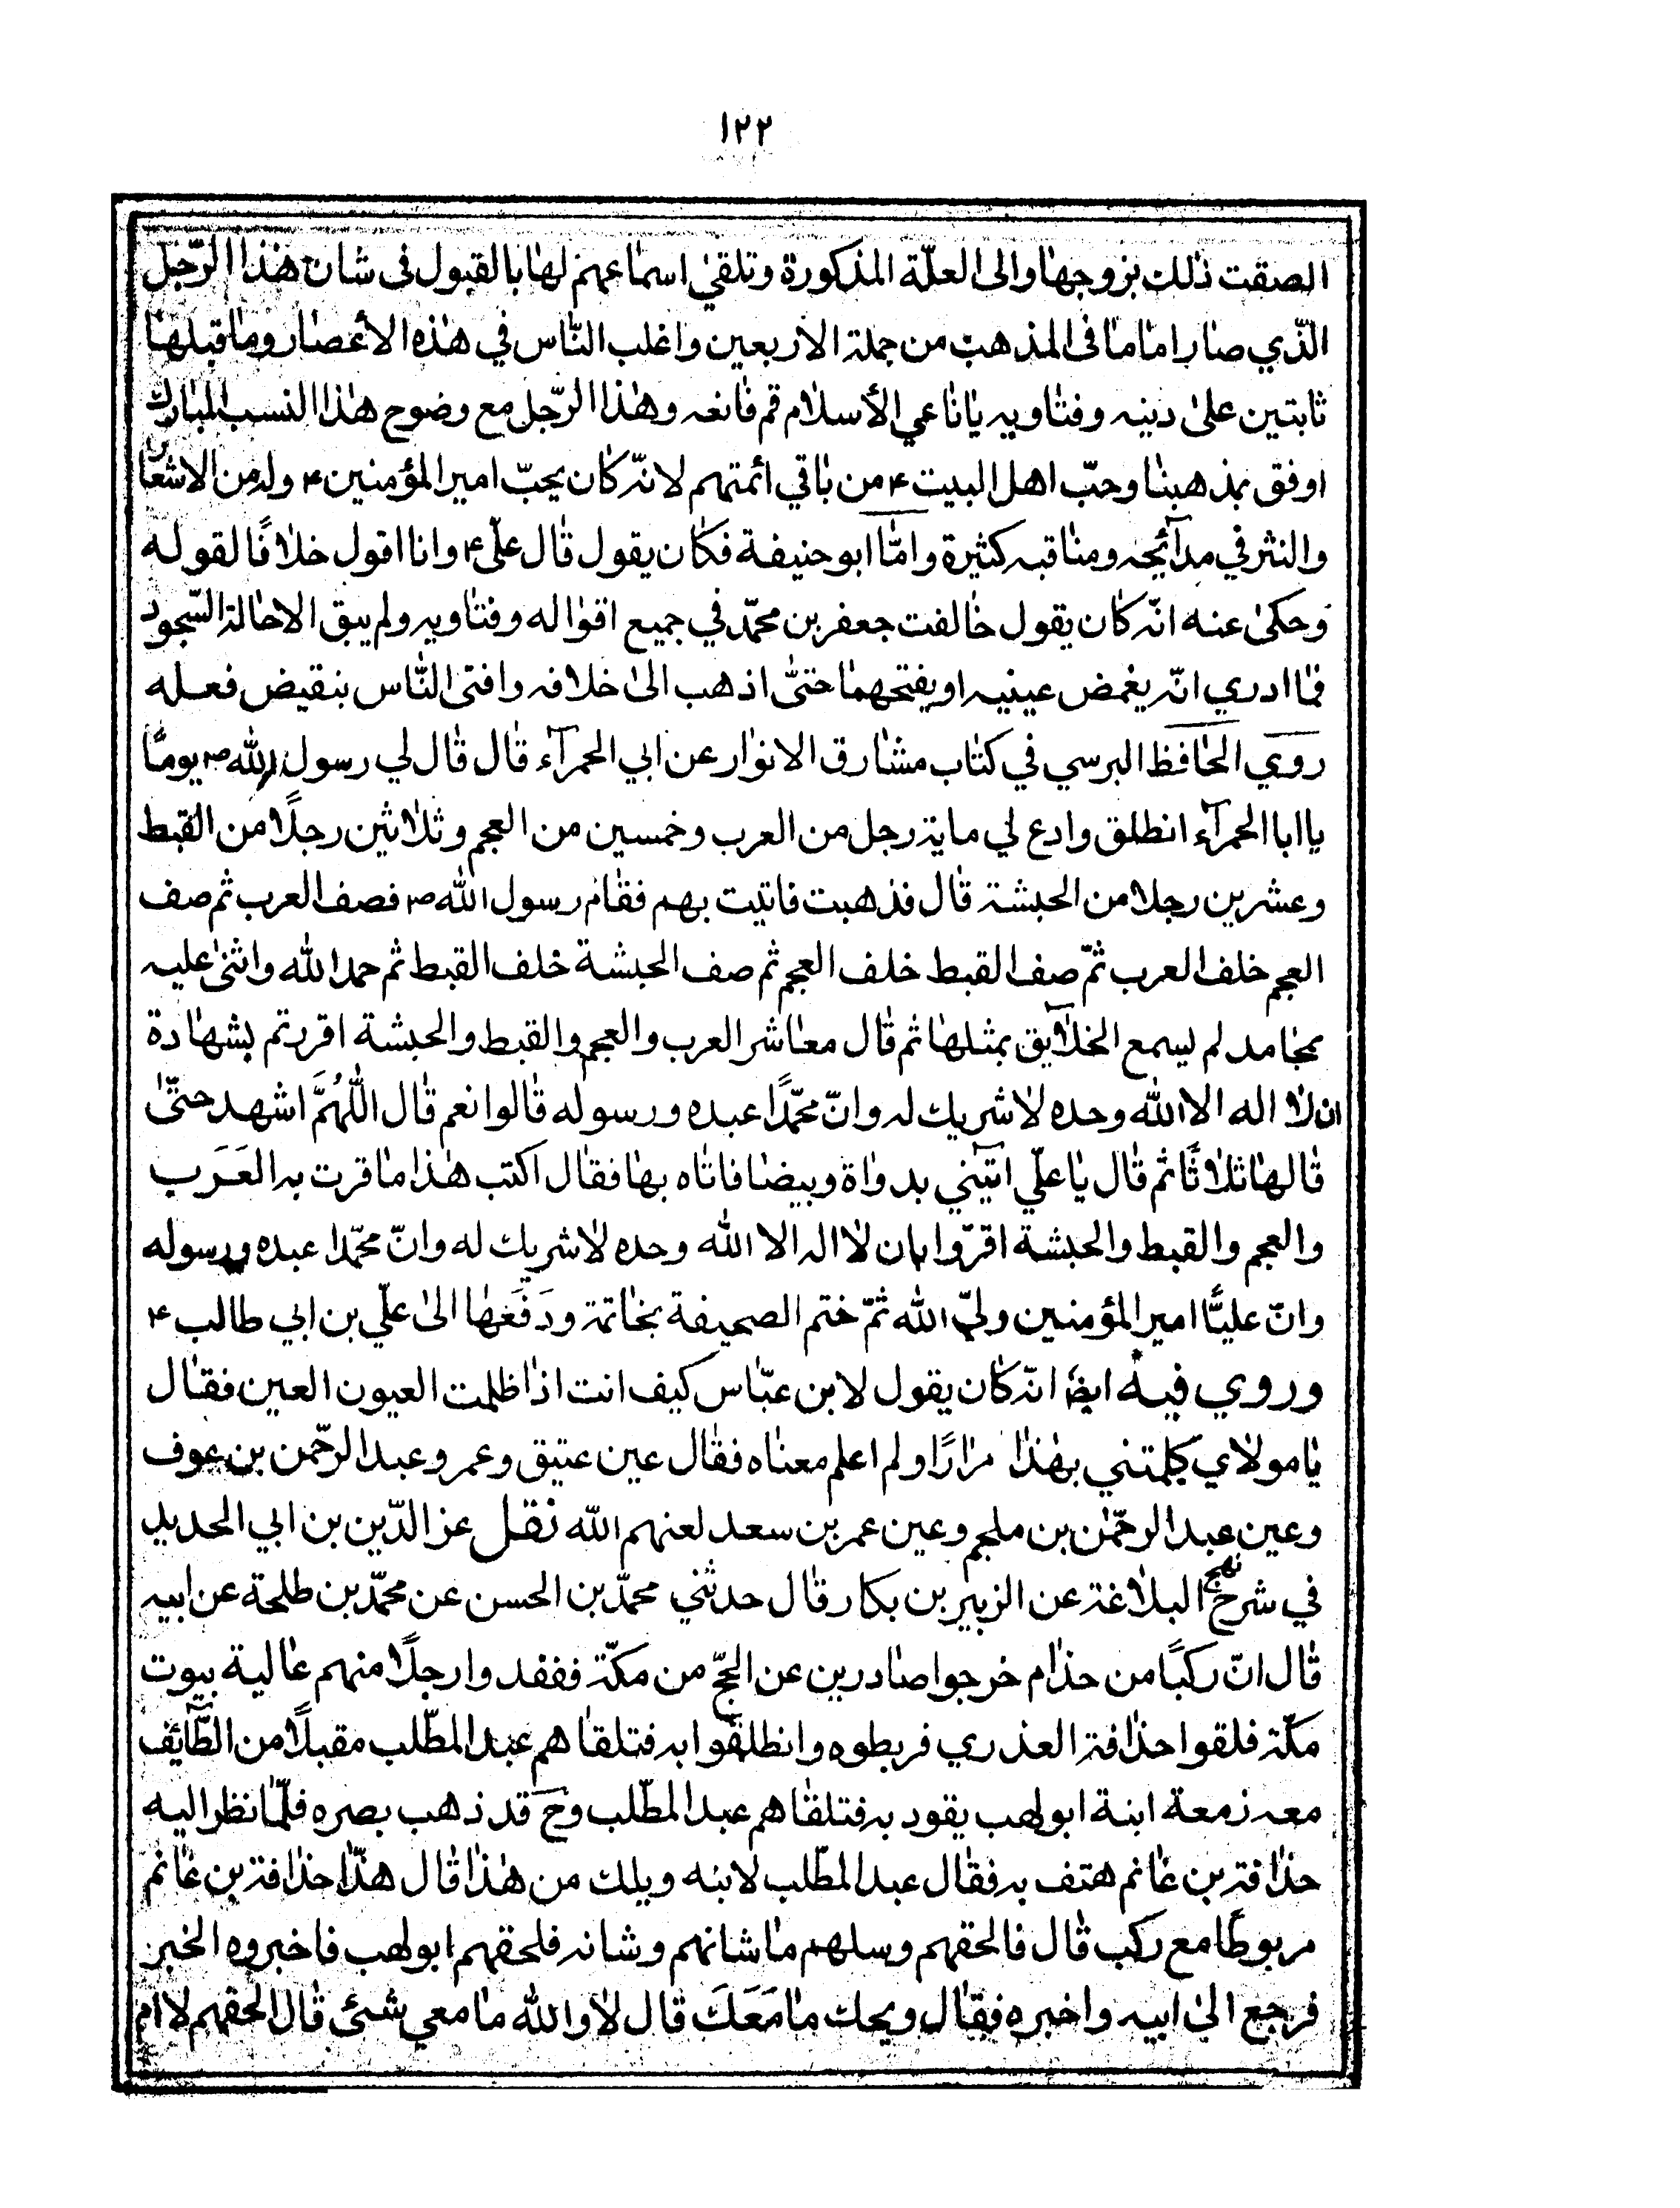 ١٢٢
الصقت ذلك بزوجها والى العلّة المذكورة وتلقي اسماعهم لها بالقبول فى شان هذا الرّجل
الّذي صار اماما فى المذهب من جملة الاربعين واغلب النّاس في هذه الأعصار وما قبلها
ثابتين على دينه وفتاويه يا ناعي الأسلام قم فانعه وهذا الرّجل مع وضوح هذا النسب المبارك
اوفق بمذهبنا وحبّ اهل البيت ع من باقي أئمتهم لانّه كان يحبّ امير المؤمنين ع وله من الاشعار
والنثر في مدآئحه ومناقبه كثيرة وامّا ابو حنيفة فكان يقول قال علّي ع وانا اقول خلافًا لقوله
وحكى عنه انّه كان يقول خالفت جعفر بن محمّد في جميع اقواله وفتاويه ولم يبق الا حالة السّجود
فما ادري انّه يغمض عينيه او يفتحهما حتىّ اذهب الى خلافه وافتى النّاس بنقيض فعله
روي الحافظ البرسي في كتاب مشارق الانوار عن ابي الحمرآء قال قال لي رسول الله ص يومًا
يا ابا الحمرآء انطلق وادع لي ماية رجل من العرب وخمسين من العجم وثلاثين رجلًا من القبط
وعشرين رجلا من الحبشة قال فذهبت فاتيت بهم فقام رسول الله ص فصف العرب ثم صف
العجم خلف العرب ثمّ صف القبط خلف العجم ثم صف الحبشة خلف القبط ثم حمد الله واثنى عليه
بمحامد لم يسمع الخلآيق بمثلها ثم قال معاشر العرب والعجم والقبط والحبشة اقررتم بشهادة
ان لا اله الا الله وحده لا شريك له وانّ محمّدًا عبده ورسوله قالوا نعم قال اللّهُمَّ اشهد حتىّ
قالها ثلاثًا ثم قال يا علّي اتيني بدواة وبيضا فاتاه بها فقال اكتب هذا ما قرت به العَرَب
والعجم والقبط والحبشة اقرّوا بان لا اله الا الله وحده لا شريك له وانّ محمّدا عبده ورسوله
وانّ عليًّا امير المؤمنين وليّ الله ثمّ ختم الصحيفة بخاتمة ودَفَعَها الى علّي بن ابي طالب ع
وروي فيه ايضا انّه كان يقول لابن عبّاس كيف انت اذا ظلمت العيون العين فقال
يا مولاي كلمتني بهذا مرارًا ولم اعلم معناه فقال عين عتيق وعمر وعبد الرحّمن بن عوف
وعين عبد الرحّمن بن ملجم وعين عمر بن سعد لعنهم الله نقل عز الدّين بن ابي الحديد
في شرح نهج البلاغة عن الزبير بن بكار قال حدثني محمّد بن الحسن عن محمّد بن طلحة عن ابيه
قال انّ ركبًا من حذام خرجوا صادرين عن الحجّ من مكّة ففقدوا رجلًا منهم عالية بيوت
مكّة فلقوا حذافة العذري فربطوه وانطلقوا به فتلقاهم عبد المطّلب مقبلًا من الطّآئف
معه زمعة ابنة ابو لهب يقود به فتلقاهم عبد المطّلب وح قد ذهب بصره فلمّا نظر اليه
حذافة بن غانم هتف به فقال عبد المطّلب لابنه ويلك من هذا قال هذا حذافة بن غانم
مربوطًا مع ركب قال فالحقهم وسلهم ما شانهم وشانه فلحقهم ابو لهب فاخبروه الخبر
فرجع الي ابيه واخبره فقال ويحك ما مَعَكَ قال لا والله ما معي شئ قال الحقهم لا ام